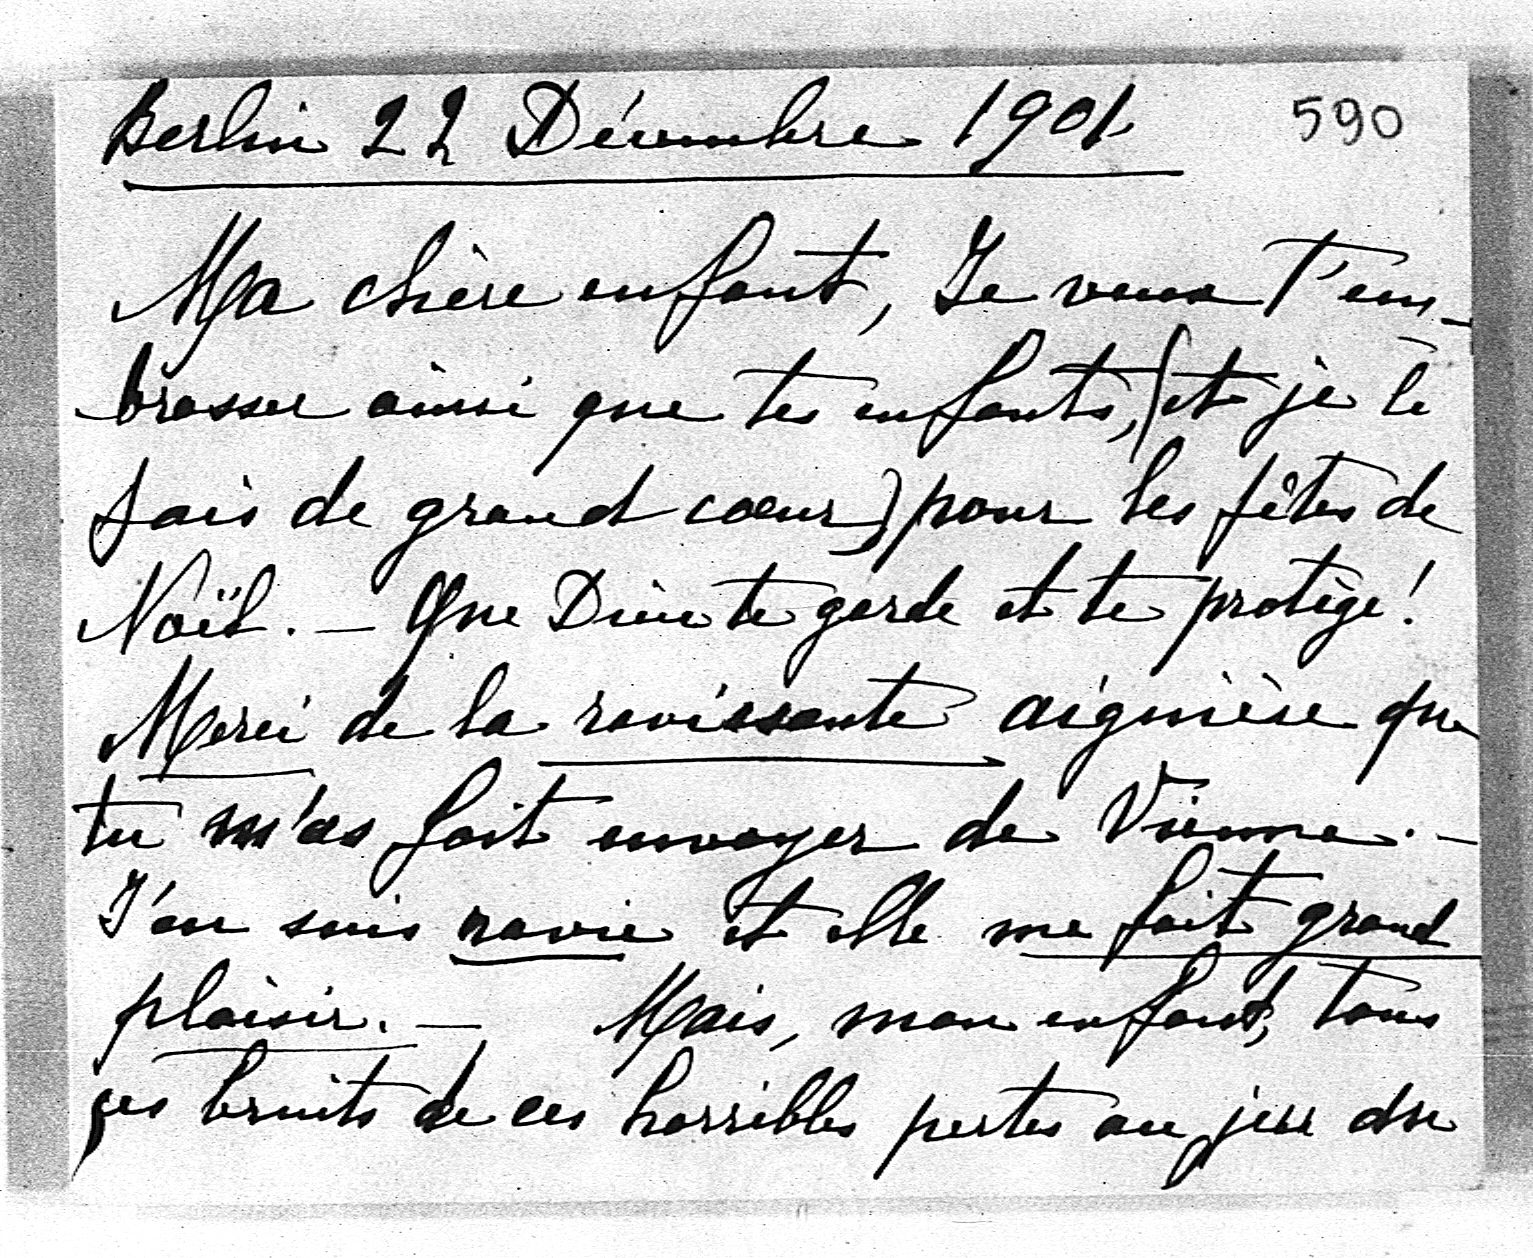 Berlin 22 Décembre 1901. 590
Ma chère enfant, Je veux t'em-
brasser ainsi que tes enfants, (et je le
fais de grand coeur) pour les fêtes de
Noël. — Que Dieu te garde et te protège!
Merci de la ravissante aiguière que
tu m'as fait envoyer de Vienne. —
J'en suis ravie et elle me fait grand
plaisir. — Mais, mon enfant, tous
ces bruits de ces horribles pertes au jeu du